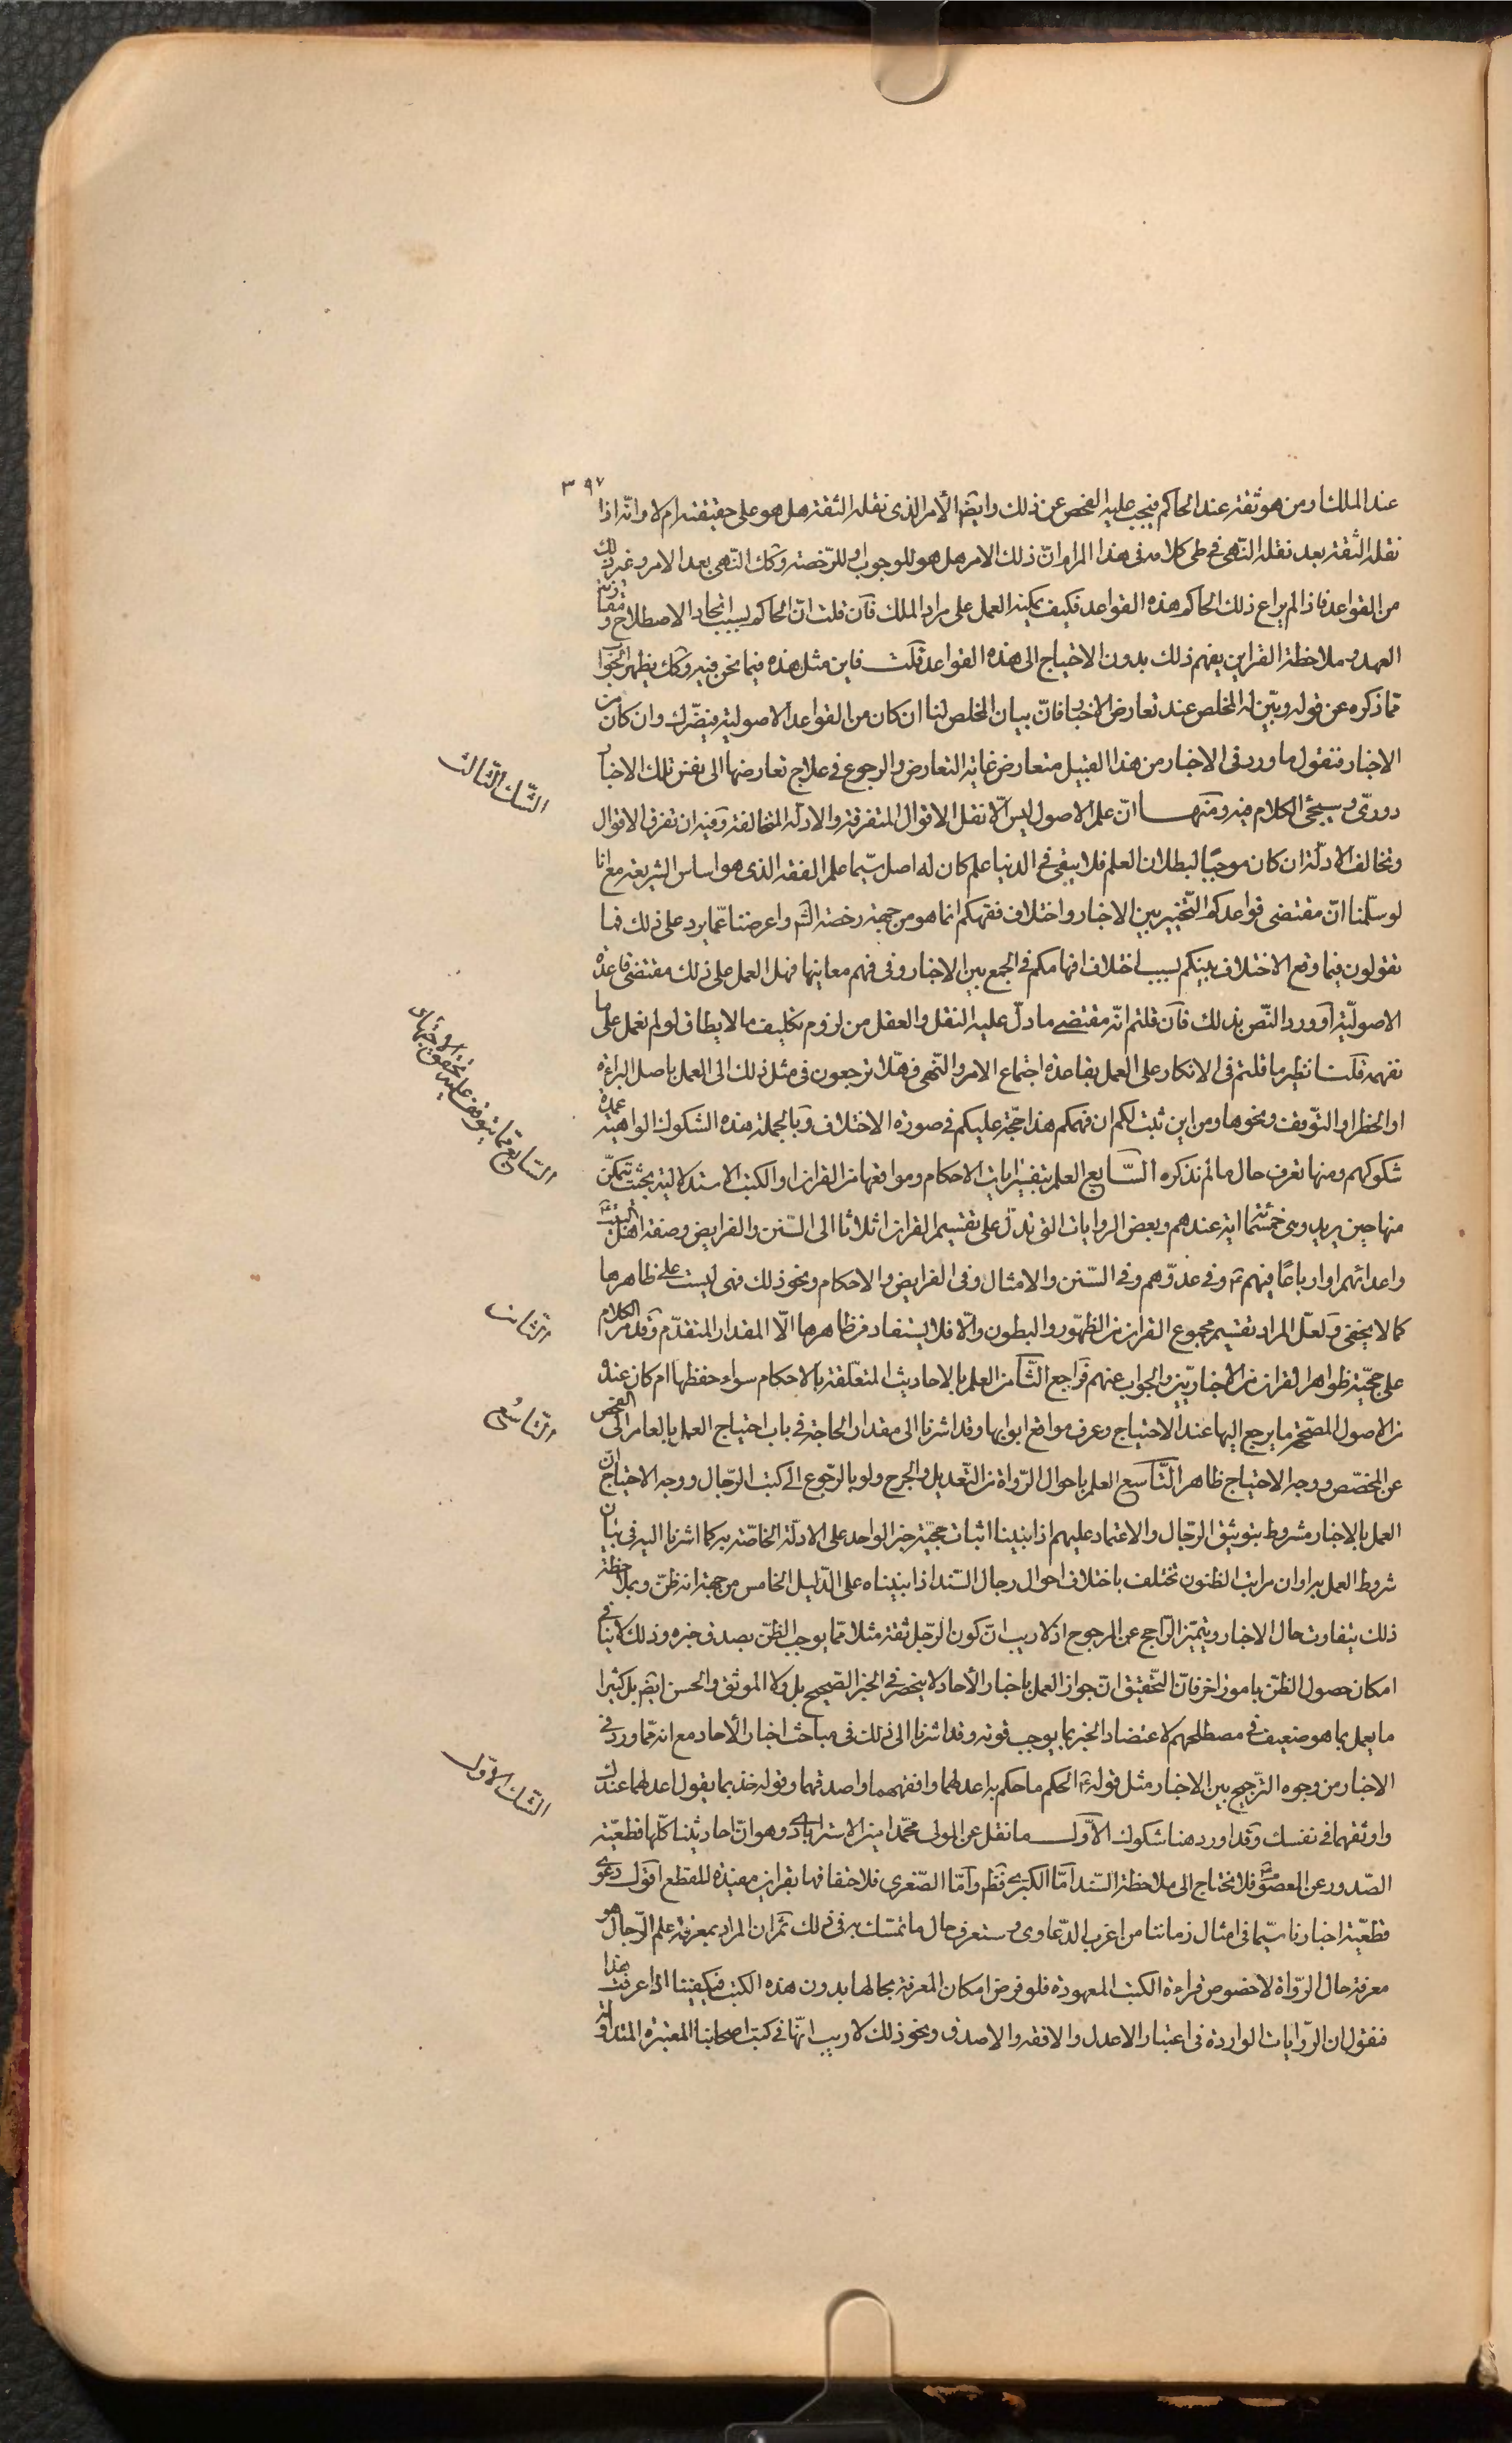 ٣٩٧
عند الملك او من هو ثقة عند الحاكم فيجب عليه الفحص عن ذلك وايضا الأمر الذى نقله الثقة هل هو على حقيقته ام لا وانّه اذا
نقله الثقة بعد نقله النّهى فى طى كلامه فى هذا المرام انّ ذلك الامر هل هو للوجوب او للرّخصة وكك النّهى بعد الامر وغير ذلك
من القواعد فاذا لم يراع ذلك الحاكم هذه القواعد فكيف يمكنه العمل على مراد الملك فآن قلت انّ الحاكم بسبب اتحاد الاصطلاح ومقارنة
العهد وملاحظة القراين يفهم ذلك بدون الاحتياج الى هذه القواعد قلت فاين مثل هذه فيما نحن فيه وكك يظهر الجواب
ممّا ذكره عن قوله ويبّين له المخلص عند تعارض الاخبار فانّ بيان المخلص لنا ان كان من القواعد الاصولية فيضّرك وان كان من
الاخبار فنقول ما ورد فى الاخبار من هذا القبيل متعارض غاية التعارض والرجوع فى علاج تعارضها الى نفس تلك الاخبار
دورىّ وسيجئ الكلام فيه ومنها انّ علم الاصول ليس الّا نقل الاقوال المتفرقة والادلّة المتخالفة وفيه ان تفرق الاقوال
وتخالف الادلّة ان كان موجبًا لبطلان العلم فلا يبقى فى الدنيا علم كان له اصل سيّما علم الفقه الذى هو اساس الشريعة مع انا
لو سلّمنا انّ مقتضى قواعدكم التّخيير بين الاخبار واختلاف فقهكم انما هو من جهة رخصة الشّ واعرضنا عمّا يرد على ذلك فما
تقولون فيما وقع الاختلاف بينكم بسبب اختلاف افهامكم فى الجمع بين الاخبار وفى فهم معانيها فهل العمل على ذلك مقتضى قاعدة
الاصوليّة او ورد النّص بذلك فآن قلتم انّه مقتضى ما دلّ عليه النقل والعقل من لزوم تكليف ما لا يطاق لو لم نعمل على ما
نفهمه قلت نظير ما قلتم فى الانكار على العمل بقاعدة اجتماع الامر والنّهى فهلّا ترجعون فى مثل ذلك الى العمل باصل البراءة
او الحظر او التّوقف ونحوها ومن اين ثبت لكم ان فهمكم هذا حجّة عليكم فى صورة الاختلاف وبالجملة هذه الشكوك الواهية عمدة
شكوكهم ومنها تعرف حال ما لم نذكره السّابع العلم بتفسير ايات الاحكام ومواقعها من القران او الكتب الاستدلالية بحيث يتمكّن
منها حين يريد وهى خمسمائة اية عندهم وبعض الروايات التى تدلّ على تقسيم القران اثلاثا الى السّنن والفرايض وصفة اهل البيت ع
واعدائهم او ارباعًا فيهم ع وفى عدوّهم وفى السّنن والامثال وفى الفرايض والاحكام ونحو ذلك فهى ليست على ظاهرها
كما لا يخفى ولعلّ المراد تقسيم مجموع القران من الظّهور والبطون والّا فلا يستفاد من ظاهرها الّا المقدار المتقدّم وقد مرّ الكلام
على حجّية ظواهر القران من الاخباريّين والجواب عنهم فراجع الثّامن العلم بالاحاديث المتعلّقة بالاحكام سواء حفظها ام كان عنده
من الاصول المصحّحة ما يرجع اليها عند الاحتياج وعرف مواقع ابوابها وقد اشرنا الى مقدار الحاجة فى باب احتياج العمل بالعام الى الفحص
عن المخصّص ووجه الاحتياج ظاهر التّاسع العلم باحوال الرّواة من التّعديل والجرح ولو بالرّجوع الى كتب الرّجال ووجه الاحتياج انّ
العمل بالاخبار مشروط بتوثيق الرّجال والاعتماد عليهم اذا بنينا اثبات حجّية خبر الواحد على الادلّة الخاصّة به كما اشرنا اليه فى بيان
شروط العمل به او ان مراتب الظنون تختلف باختلاف احوال رجال السّند اذا بنيناه على الدّليل الخامس من جهة انه ظنّ وبملاحظة
ذلك يتفاوت حال الاخبار ويتميّز الرّاجح عن المرجوح اذ لا ريب انّ كون الرّجل ثقة مثلا ممّا يوجب الظنّ بصدق خبره وذلك لا ينافى
امكان حصول الظنّ بامور اخر فانّ التّحقيق انّ جواز العمل باخبار الأحاد لا ينحصر فى الخبر الصّحيح بل ولا الموثق والحسن ايضا بل كثيرا
ما يعمل بما هو ضعيف فى مصطلحهم لاعتضاد الخبر بما يوجب قوته وقد اشرنا الى ذلك فى مباحث اخبار الأحاد مع انه ممّا ورد فى
الاخبار من وجوه التّرجيح بين الاخبار مثل قوله ع الحكم ما حكم به اعدلهما وافقههما واصدقهما وقوله خذ بما يقول اعدلهما عندك
واوثقهما فى نفسك وقد اورد هنا شكوك الاوّل ما نقل عن المولى محمّد امين الاسترابادى وهو انّ احاديثنا كلّها قطعيّة
الصّدور عن المعصوم ع فلا نحتاج الى ملاحظة السّند امّا الكبرى فظ وامّا الصّغرى فلاحتفافها بقراين مفيدة للقطع اقول دعوى
قطعيّة اخبارنا سيّما فى امثال زماننا من اغرب الدّعاوى وستعرف حال ما تمسّك به فى ذلك ثمّ ان المراد بمعرفة علم الرّجال هو
معرفة حال الرّواة لا خصوص قراءة الكتب المعهودة فلو فرض امكان المعرفة بحالها بدون هذه الكتب فيكفينا اذا عرفت هذا
فنقول ان الرّوايات الواردة فى اعتبار الاعدل والافقه والاصدق ونحو ذلك لا ريب انّها فى كتب اصحابنا المعتبرة المتداولة
الشّك الثّالث
السّابع ممّا يتوقف عليه تحقق الاجتهاد
الثّامن
التّاسع
الشّك الاوّل